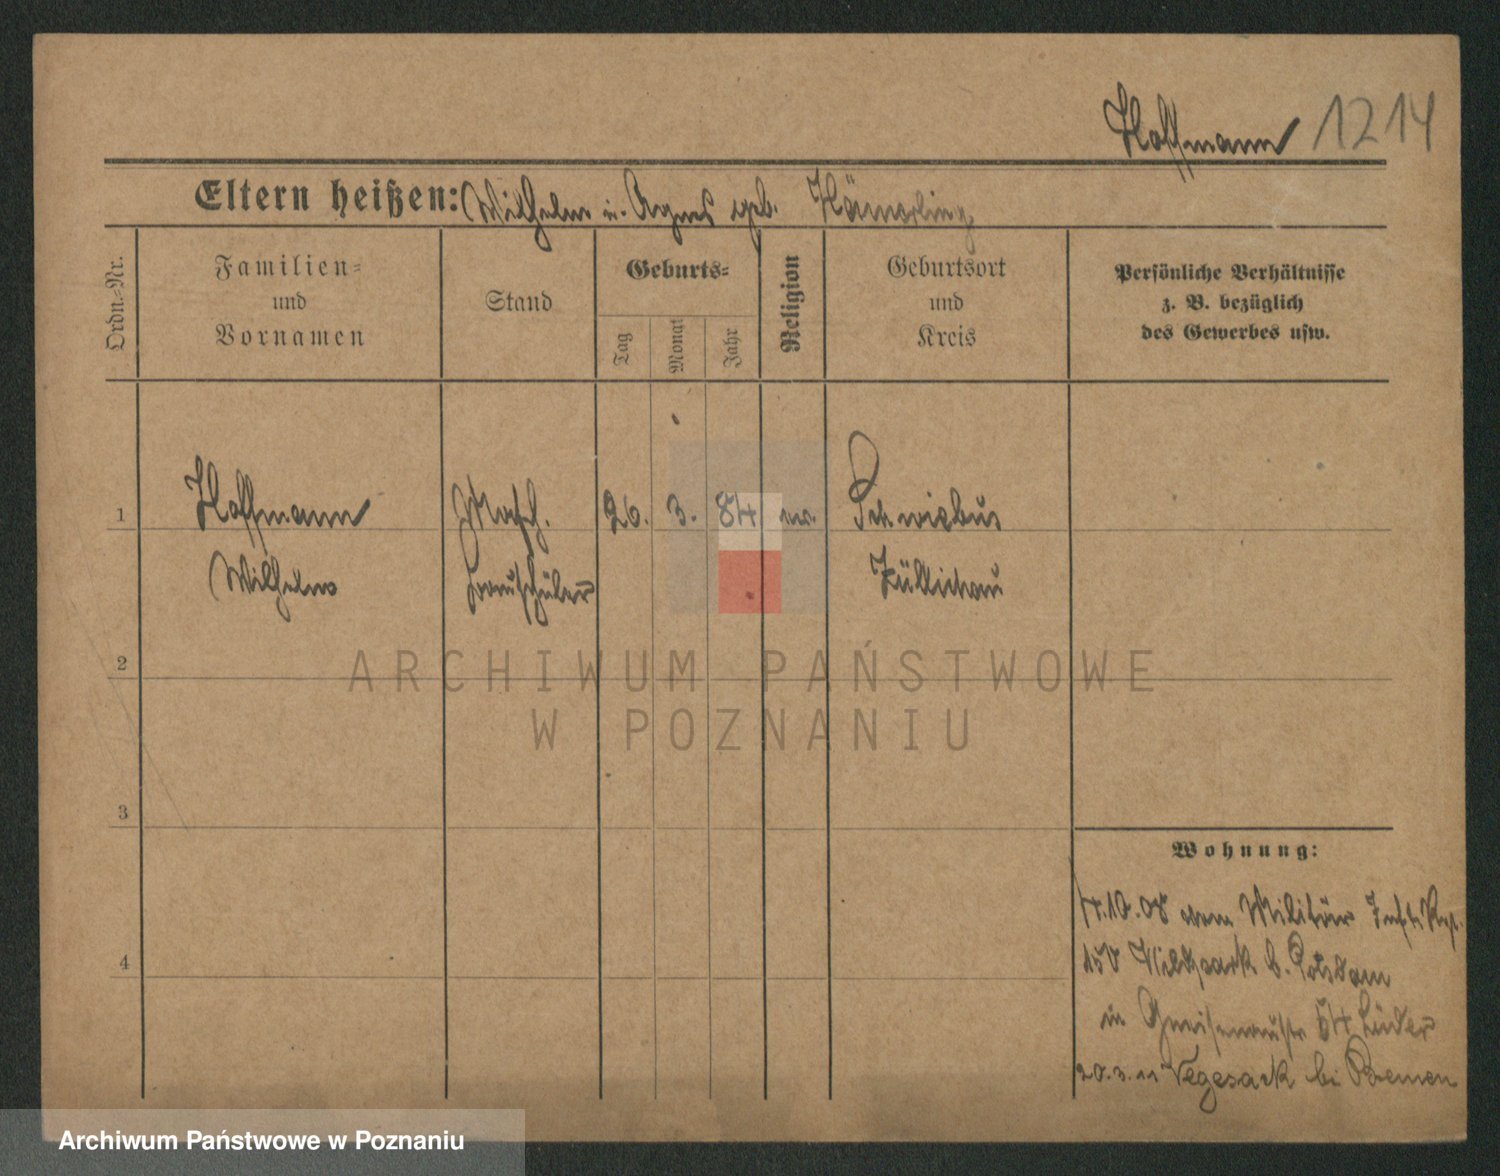 Hoffmann 1214
Eltern heißen: Wilhelm u. Agnes geb. Hämerling
Ordn.-Nr.
Familien-
und
Vornamen
Stand
Geburts-
Tag
Monat
Jahr
Religion
Geburtsort
und
Kreis
Persönliche Verhältnisse
z. B. bezüglich
des Gewerbes usw.
1 Hoffmann Masch. 26. 3. 84 ev. Schwiebus
Wilhelm Bauschüler Züllichau
2
ARCHIWUM PAŃSTWOWE
W POZNANIU
3
4
Wohnung:
4.10.08 vom Militär Inft. Regt.
150 Wildpark b. Potsdam
in Gneisenaustr 54 Lüder
20.3.11 Vegesack bei Bremen
Archiwum Państwowe w Poznaniu